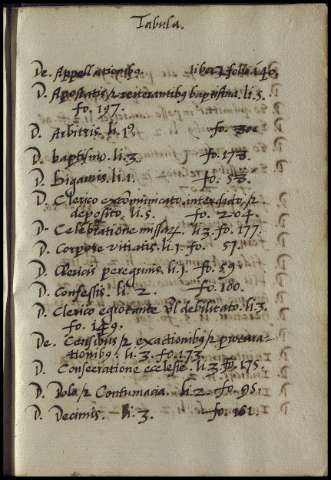 Tabula.
De Appellationibꝰ. liber 2 folio 146
D. Apostatis et reiterantibꝰ baptisma. li. 5.
fo. 197.
D. Arbitris. li. 1º. fo.
D. baptismo. li. 3. fo. 173.
D. Bigamis. li. 1. fo. 53.
D. Clerico excōmunicato, interdicto, et
deposito. li. 5. fo. 204.
D. Celebratione missaꝝ. li. 3. fo. 177.
D. Corpore vitiatis. li. 1. fo. 57.
D. Clericis peregrinis. li. 1. fo. 59
D. Confessis. li. 2. fo. 100.
D. Clerico egrotante vl debilitato. li. 3.
fo. 149.
De Censibus et exactionibꝰ et procura-
tionibꝰ. li. 3. fo. 173.
D. Consecratione ecclesie. li. 3. fo. 175.
D. Dolo et Contumacia. li. 2. fo. 95.
D. Decimis. li. 3. fo. 161.